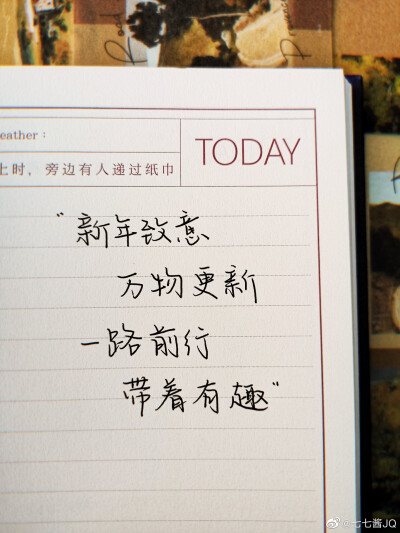 eather:
TODAY
上时，旁边有人递过纸巾
"新年致意
万物更新
一路前行
带着有趣"
@七七酱JQ